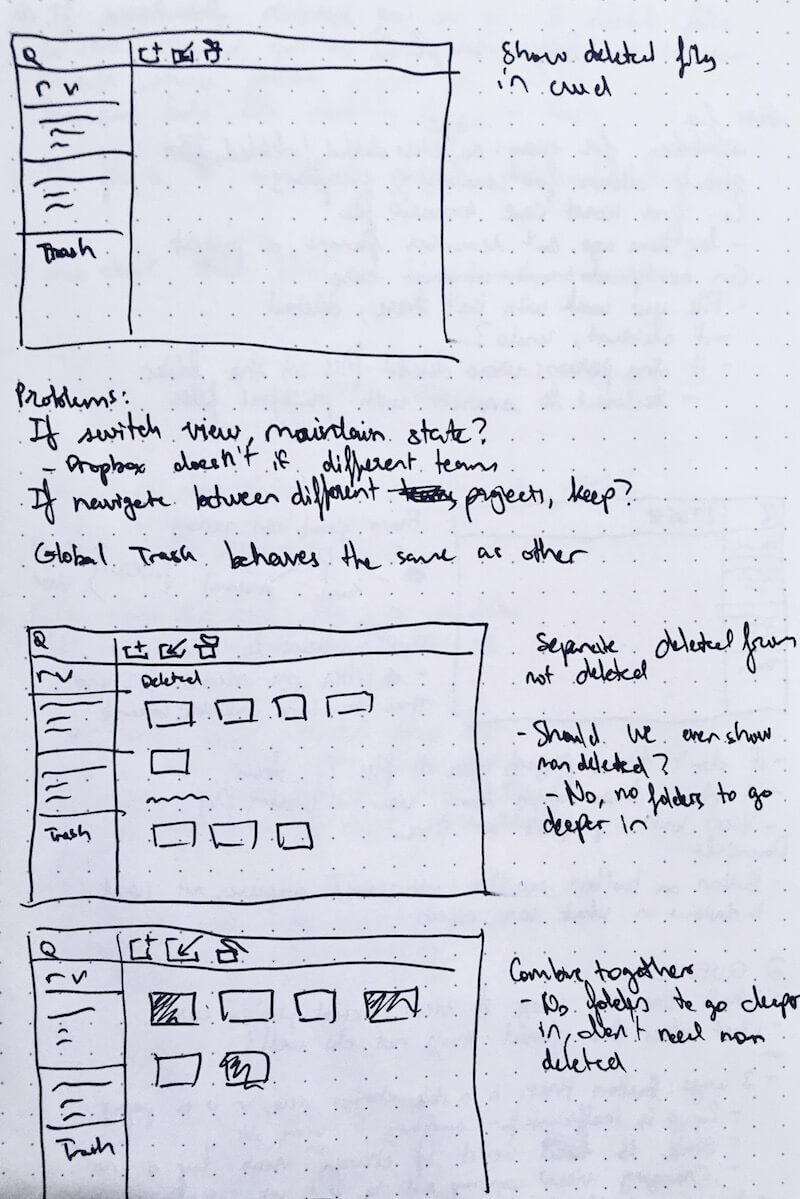 Show deleted files
in
Trash
Problems:
If switch view, maintain state?
- Dropbox doesn't if different teams
If navigate between different projects, keep?
Global Trash behaves the same as other
Separate deleted from
not deleted
Deleted
- Should we even show
non deleted?
- No, no folders to go
deeper in
Trash
Combine together
- No folders to go deeper
in, don't need non
deleted
Trash